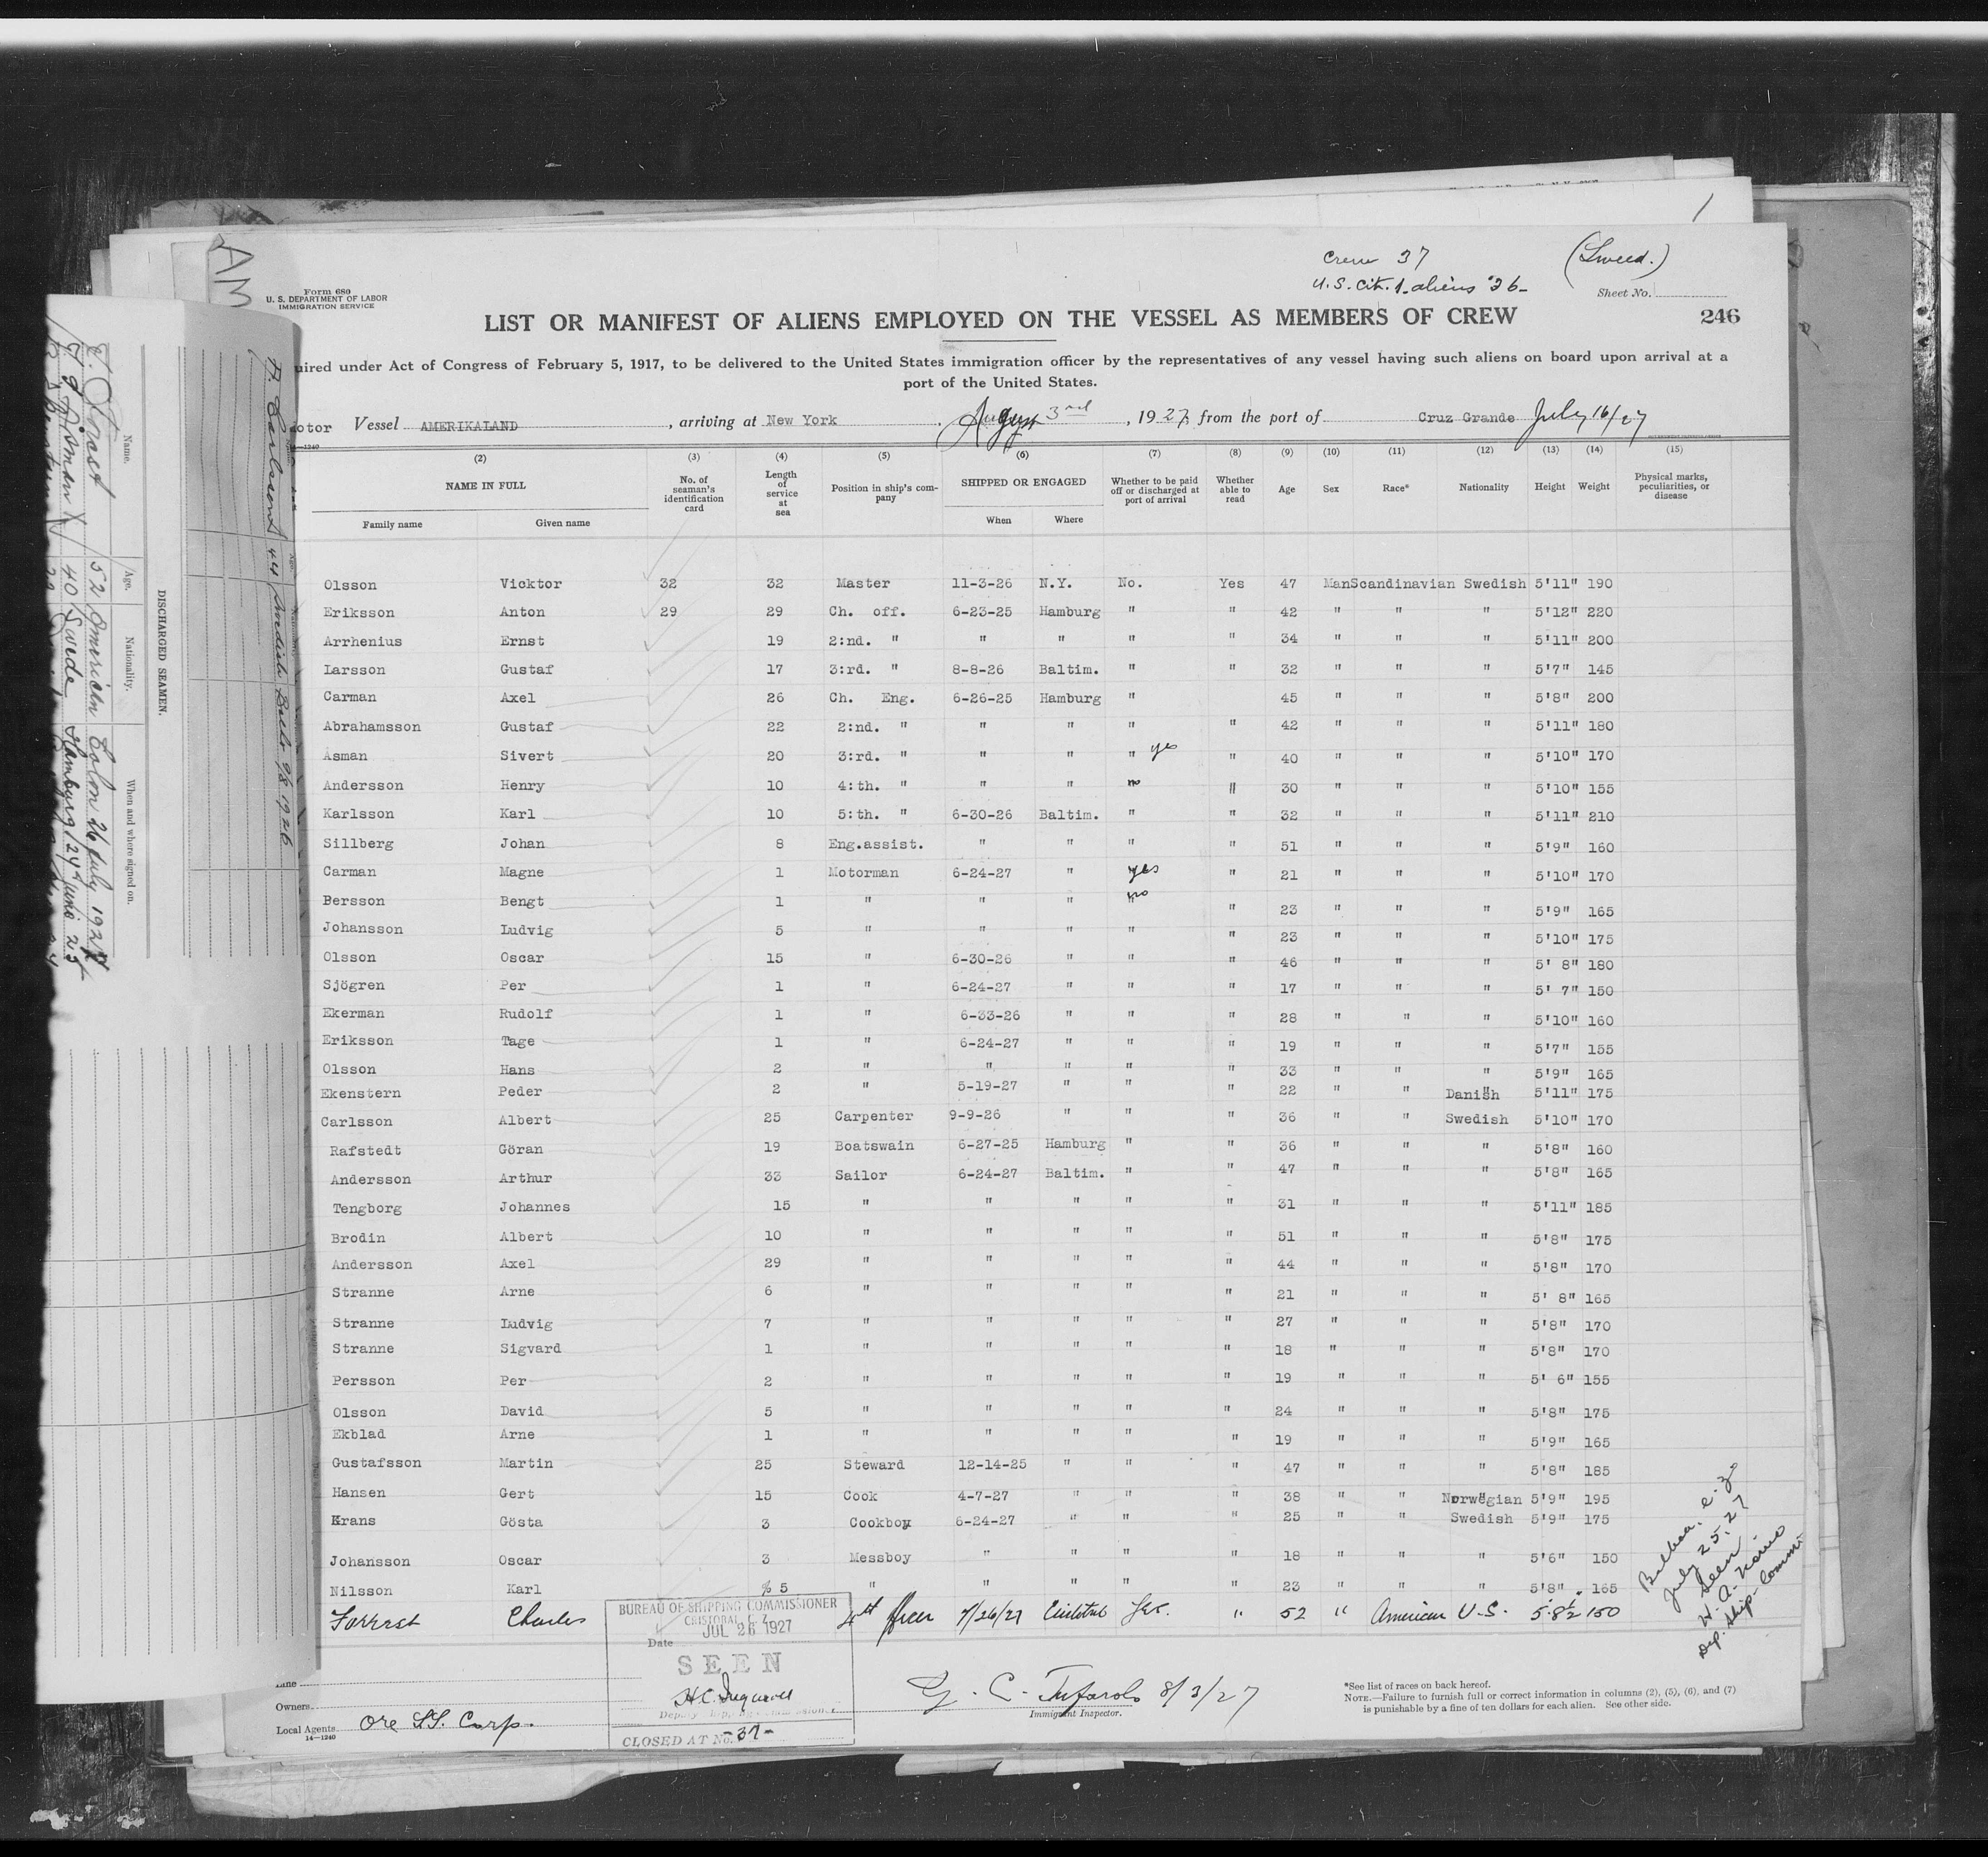 1
Crew 37
(Swed.)
U.S. Cit. 1 aliens 36
AM
Form 680
U. S. DEPARTMENT OF LABOR
IMMIGRATION SERVICE
Sheet No.
LIST OR MANIFEST OF ALIENS EMPLOYED ON THE VESSEL AS MEMBERS OF CREW
246
uired under Act of Congress of February 5, 1917, to be delivered to the United States immigration officer by the representatives of any vessel having such aliens on board upon arrival at a
port of the United States.
otor Vessel AMERIKALAND, arriving at New York, August 3rd, 1927, from the port of Cruz Grande July 16/27
14—1240
(2) (3) (4) (5) (6) (7) (8) (9) (10) (11) (12) (13) (14) (15)
NAME IN FULL No. of seaman's identification card Length of service at sea Position in ship's company SHIPPED OR ENGAGED Whether to be paid off or discharged at port of arrival Whether able to read Age Sex Race* Nationality Height Weight Physical marks, peculiarities, or disease
Family name Given name When Where
Olsson Vicktor 32 32 Master 11-3-26 N.Y. No. Yes 47 Man Scandinavian Swedish 5'11" 190
Eriksson Anton 29 29 Ch. off. 6-23-25 Hamburg " " 42 " " " 5'12" 220
Arrhenius Ernst 19 2:nd. " " " " " 34 " " " 5'11" 200
Larsson Gustaf 17 3:rd. " 8-8-26 Baltim. " " 32 " " " 5'7" 145
Carman Axel 26 Ch. Eng. 6-26-25 Hamburg " 45 " " " 5'8" 200
Abrahamsson Gustaf 22 2:nd. " " " " " 42 " " " 5'11" 180
Asman Sivert 20 3:rd. " " " " yes " 40 " " " 5'10" 170
Andersson Henry 10 4:th. " " " no " 30 " " " 5'10" 155
Karlsson Karl 10 5:th. " 6-30-26 Baltim. " " 32 " " " 5'11" 210
Sillberg Johan 8 Eng.assist. " " " " 51 " " " 5'9" 160
Carman Magne 1 Motorman 6-24-27 " yes " 21 " " " 5'10" 170
Bersson Bengt 1 " " " no " 23 " " " 5'9" 165
Johansson Ludvig 5 " " " " " 23 " " " 5'10" 175
Olsson Oscar 15 " 6-30-26 " " " 46 " " " 5' 8" 180
Sjögren Per 1 " 6-24-27 " " " 17 " " " 5' 7" 150
Ekerman Rudolf 1 " 6-33-26 " " " 28 " " " 5'10" 160
Eriksson Tage 1 " 6-24-27 " " " 19 " " " 5'7" 155
Olsson Hans 2 " " " " " 33 " " " 5'9" 165
Ekenstern Peder 2 " 5-19-27 " " " 22 " " Danish 5'11" 175
Carlsson Albert 25 Carpenter 9-9-26 " " " 36 " " Swedish 5'10" 170
Rafstedt Göran 19 Boatswain 6-27-25 Hamburg " " 36 " " " 5'8" 160
Andersson Arthur 33 Sailor 6-24-27 Baltim. " " 47 " " " 5'8" 165
Tengborg Johannes 15 " " " " " 31 " " " 5'11" 185
Brodin Albert 10 " " " " " 51 " " " 5'8" 175
Andersson Axel 29 " " " " " 44 " " " 5'8" 170
Stranne Arne 6 " " " " " 21 " " " 5' 8" 165
Stranne Ludvig 7 " " " " " 27 " " " 5'8" 170
Stranne Sigvard 1 " " " " " 18 " " " 5'8" 170
Persson Per 2 " " " " " 19 " " " 5' 6" 155
Olsson David 5 " " " " " 24 " " " 5'8" 175
Ekblad Arne 1 " " " " " 19 " " " 5'9" 165
Gustafsson Martin 25 Steward 12-14-25 " " " 47 " " " 5'8" 185
Hansen Gert 15 Cook 4-7-27 " " " 38 " " Norwegian 5'9" 195
Krans Gösta 3 Cookboy 6-24-27 " " " 25 " " Swedish 5'9" 175
Johansson Oscar 3 Messboy " " " " 18 " " " 5'6" 150
Nilsson Karl 5 " " " " " 23 " " " 5'8" 165
Forrest Charles 4th officer 7/26/27 Cristobal Yes. " 52 " American U.S. 5'8½ 150
Balboa. C. Z.
July 25-27
Seen
Dep. Ship. Comm.
BUREAU OF SHIPPING COMMISSIONER
CRISTOBAL, C. Z.
JUL 26 1927
Date
SEEN
Deputy Shipping Commissioner
CLOSED AT No. -37-
8/3/27
Immigrant Inspector.
Line
Owners
Local Agents Ore SS. Corp.
14—1240
*See list of races on back hereof.
NOTE.—Failure to furnish full or correct information in columns (2), (5), (6), and (7)
is punishable by a fine of ten dollars for each alien. See other side.
DISCHARGED SEAMEN.
Name. Age. Nationality. When and where signed on.
52 American Colon 26 July 1927
40 Swede Hamburg 24 June 25
A. Carlsson 44 Swedish Balto 9/8 1926